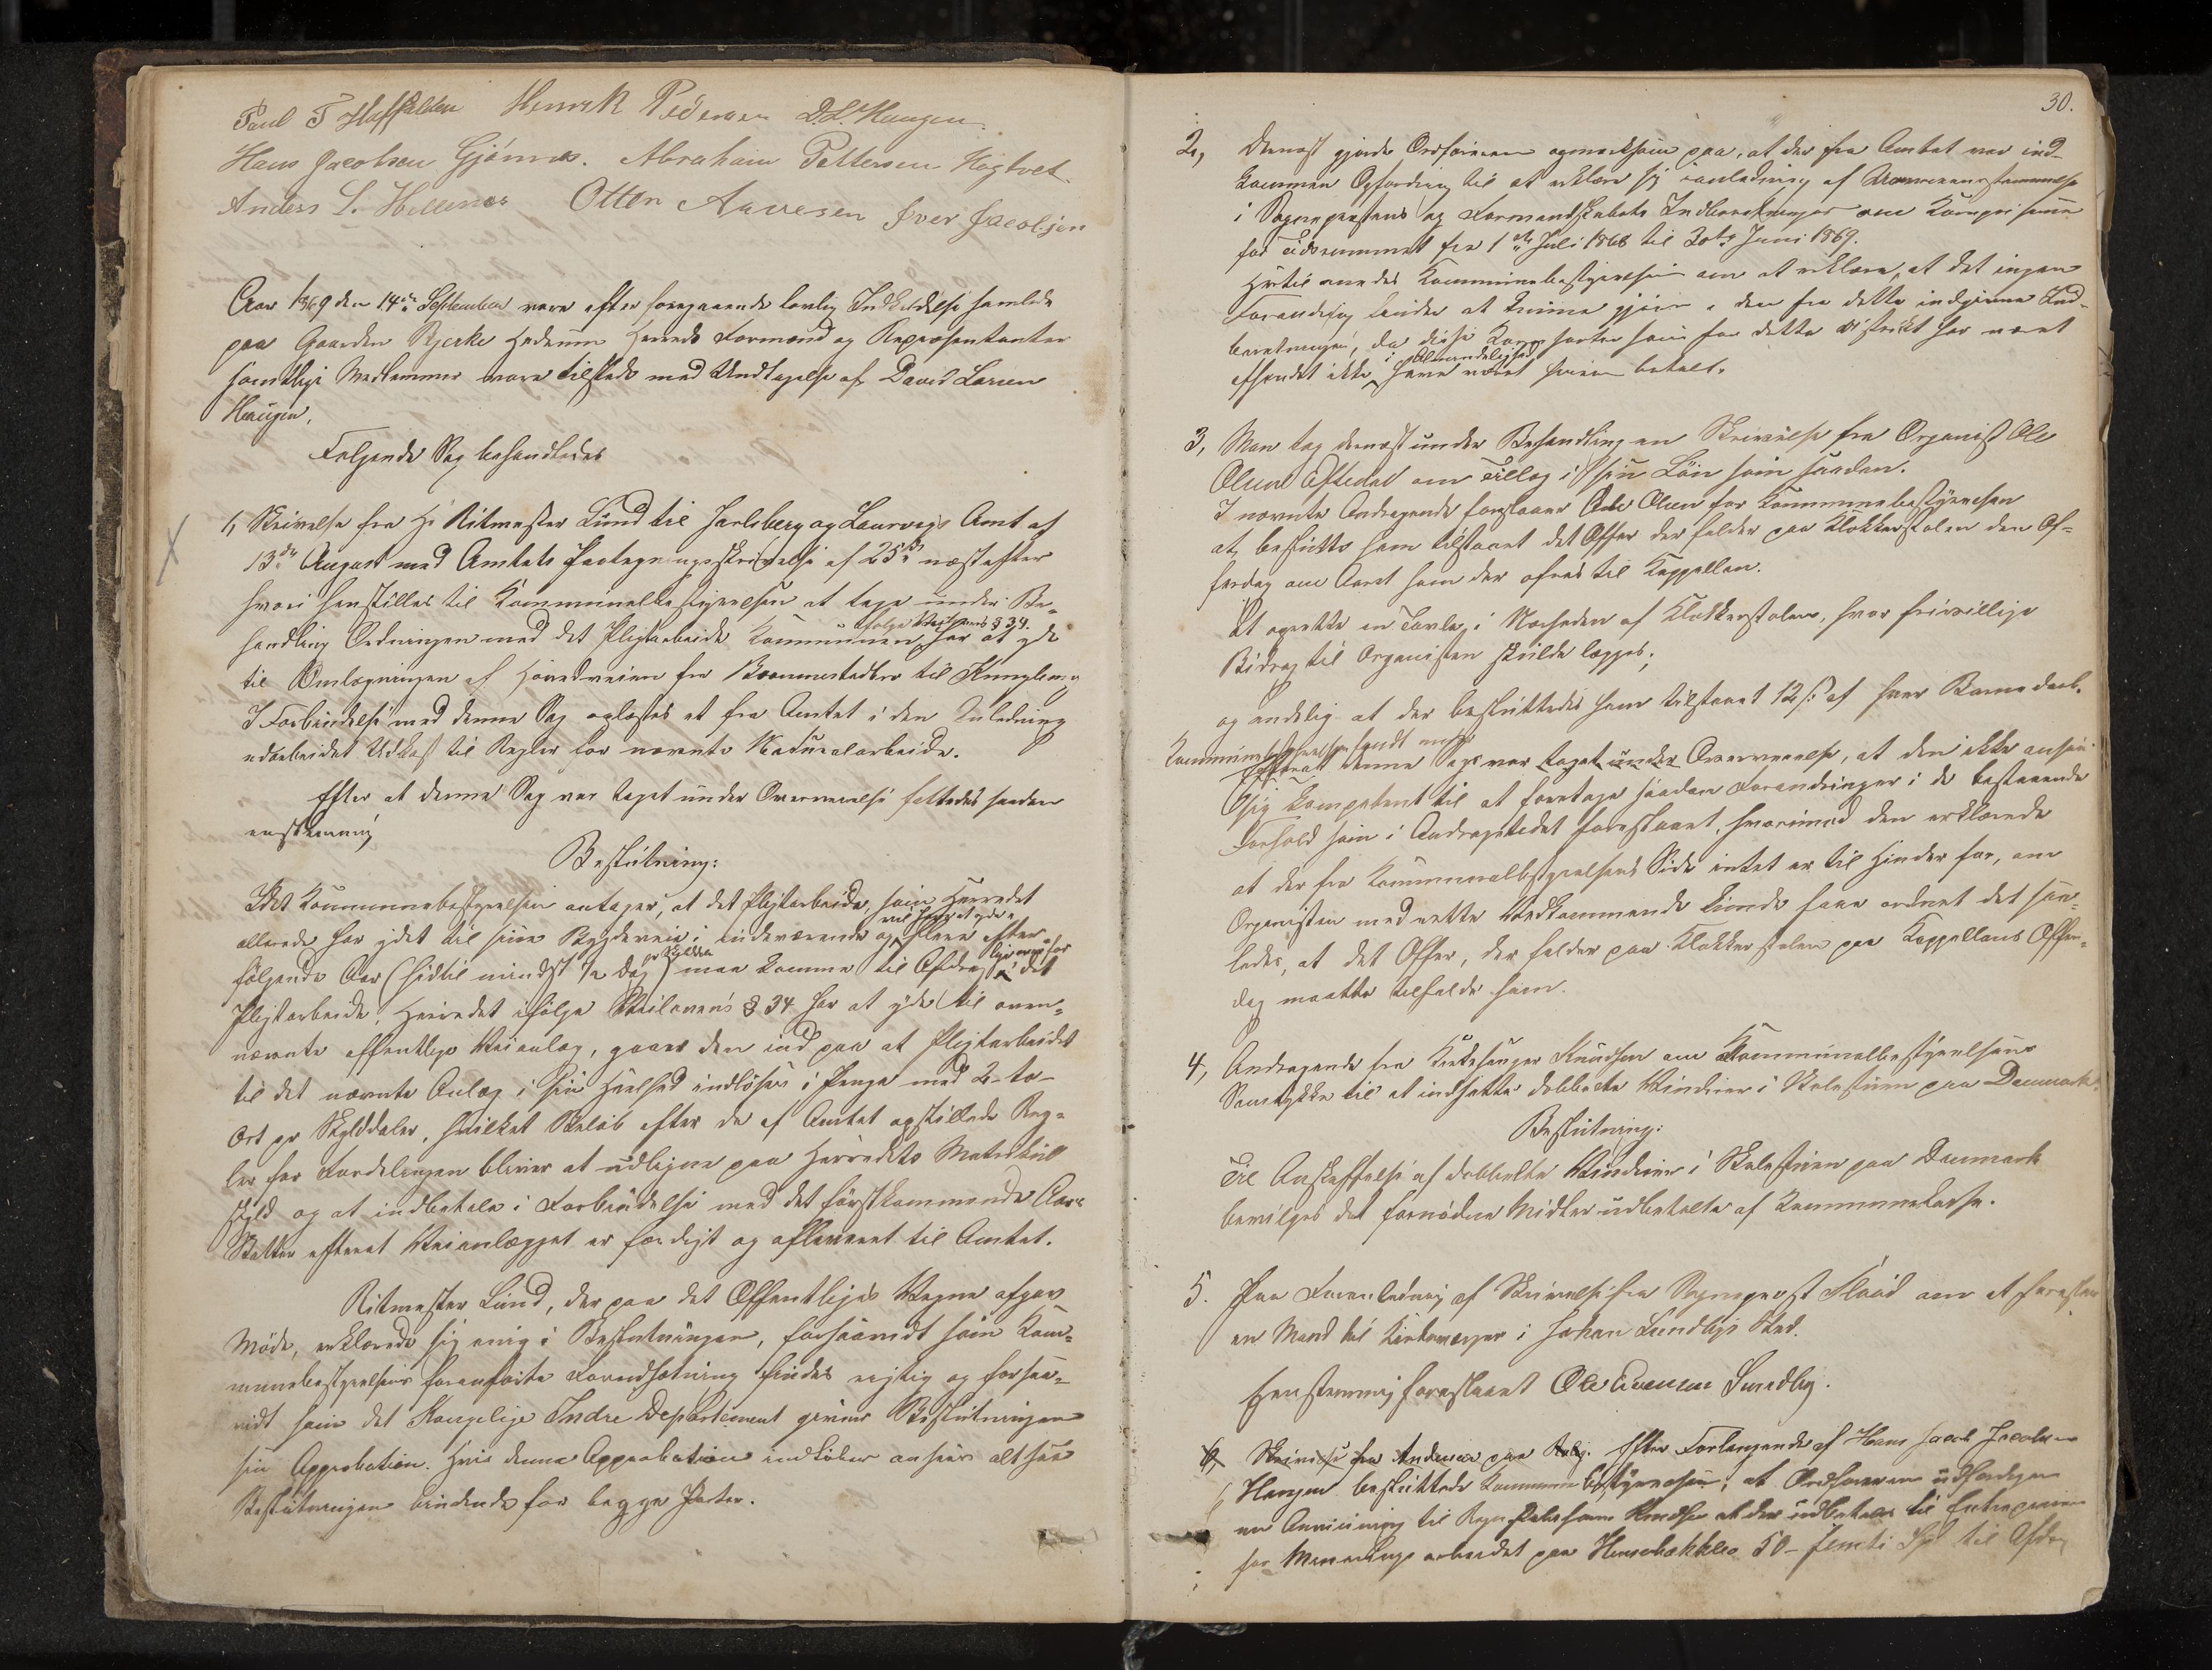 Paul T Haffsalden Henrik Pedersen D.L. Haugen.
Hans Jacobsen Gjønnes. Abraham Pettersen Høgtvet
Anders L. Hellenes Otter Aavesen Iver Jacobsen
Aar 1869 den 14de September vare efter foregaaende lovlig Indkaldelse samlede
paa Gaarden Bjerke Hedrum Herreds Formænd og Repræsentanter
samtlige Medlemmer vare tilstede med Undtagelse af David Larsen
Haugen.
Følgende Sag behandledes
1, Skrivelse fra Hr Ritmester Lund til Jarlsberg og Laurvigs Amt af
13de August med Amtets Paategningsskrivelse af 25de næstefter
hvori henstilles til Kommunebestyrelsen at tage under Be-
handling Ordningen med det Pligtarbeide Kommunen ifølge Veilovens § 34. har at yde
til Omlægningen af Hovedveien fra Brommestadbro til
I Forbindelse med denne Sag oplæstes et fra Amtet i den Anledning
udarbeidet Udkast til Regler for nævnte Naturalarbeide.
Efter at denne Sag var taget under Overveielse fattedes saadan
enstemmig
Beslutning:
Idet Kommunebestyrelsen antager, at det Pligtarbeide, som Herredet
allerede har ydet til sine Bygdeveie i indeværende og vil have at yde i flere efter-
følgende Aar (hidtil mindst ½ Dag pr Skylddaler) maa komme til Afdrag i det
Pligtarbeide, Herredet ifølge Veilovens § 34 har at yde til oven-
nævnte offentlige Veianlæg, gaaes den ind paa at Pligtarbeidet
til det nævnte Anlæg i sin Heelhed indløses i Penge med 2-to-
Ort pr Skylddaler, hvilket Beløb efter de af Amtet opstillede Reg-
ler for Fordelingen bliver at udligne paa Herredets Matrikul
skyld og at indbetale i Forbindelse med det førstkommende Aars
Skatter efterat Veianlægget er færdigt og afleveret til Amtet.
Ritmester Lund, der paa det Offentliges Vegne afgav
Møde, erklærede sig enig i Beslutningen, forsaavidt som Kom-
munebestyrelsens foranførte Forudsætning findes rigtig og forsaa-
vidt som det Kongelige Indre Departement giver Beslutningen
sin Approbation. Hvis denne Approbation indløber ansees altsaa
Beslutningen bindende for begge Parter.
30.
2, Dernæst gjorde Ordføreren opmærksom paa, at der fra Amtet var ind-
kommen Opfordring til at erklære sig i anledning af Uoverensstemmelse
i Sogneprestens og Formandskabets Indberetninger om Kornpriserne
for Tidsrummet fra 1ste Juli 1868 til 30te Juni 1869.
Hertil enedes Kommunebestyrelsen om at erklære, at det ingen
Forandring fandt at kunne gjøre i den fra dette indgivne Ind-
beretning, da disse Kornsorter som for dette District har været
afhændet ikke i Almindelighed have været høiere betalt.
3, Man tog dernæst under Behandling en Skrivelse fra Organist Ole
Olsen Astedal om Tillæg i sin Løn som saadan.
I nævnte Andragende foreslaaer Ole Olsen for Kommunebestyrelsen
at, beslutte ham tilstaaet det Offer der falder paa Klokkerstolen den Of-
ferdag om Aaret som der ofres til Kappellan.
At opsætte en Tavle i Nærheden af Klokkerstolen, hvor frivillige
Bidrag til Organisten skulde lægges;
og endelig at der besluttedes ham tilstaaet 12 s af hver Barnedaab.
Kommunebestyrelsen fandt
Efterat denne Sag var taget under Overveielse, at den ikke ansaa
sig kompetent til at foretage saadan Forandringer i de bestaaende
Forhold som i Andragendet foreslaaet, hvorimod den erklærede
at der fra Kommunalbestyrelsens Side intet er til Hinder for, om
Organisten med rette Vedkommende kunde faae ordnet det saa-
ledes, at det Offer, der falder paa Klokkerstolen paa Kappellans Offer-
dag maatte tilfalde ham.
4, Andragende fra Kirkesanger Knudsen om Kommunalbestyrelsens
Samtykke til at indsætte dobbelte Vinduer i Skolestuen paa Danmark.
Beslutning:
Til Anskaffelse af dobbelte Vinduer i Skolestuen paa Danmark
bevilges det fornødne Midler udbetalte af Kommunekassen.
5. Paa Foranledning af Skrivelse fra Sogneprest Flood om at foreslaa
en Mand til Kirkeværger i Johan Sundbys Sted.
Enstemmig foreslaaet Ole Evensen Sundby.
6, Skrivelse fra Andersen paa Efter Forlangende af Hans Jacob Jacobsen
6 Haugen besluttede Kommunebestyrelsen, at Ordføreren udfærdigen
en Anvisning til Regnskabsfører Knudsen at der udbetales til Entreprenøren
for arbeidet paa 50 - femti Spd til Afdrag